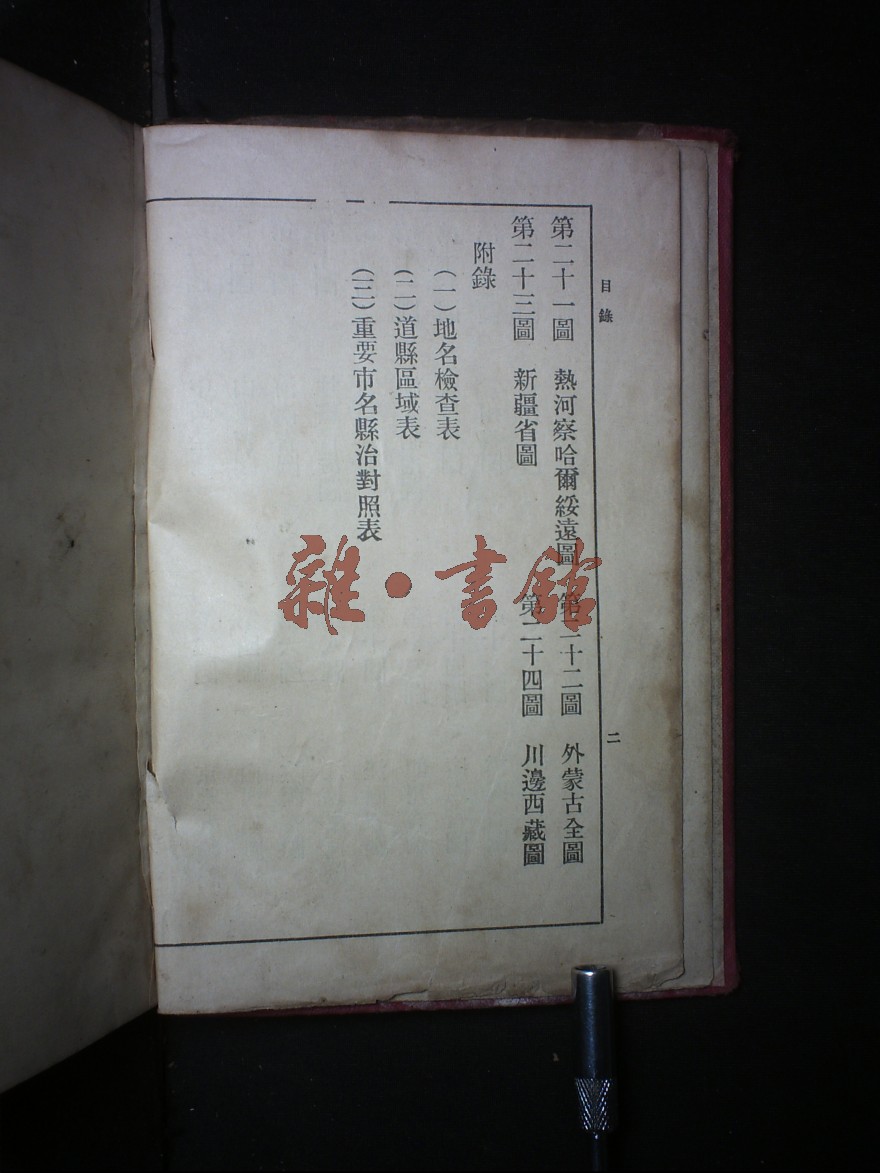 目錄
二
第二十一圖 熱河察哈爾綏遠圖 第二十二圖 外蒙古全圖
第二十三圖 新疆省圖 第二十四圖 川邊西藏圖
附錄
(一)地名檢查表
(二)道縣區域表
(三)重要市名縣治對照表
雜·書館